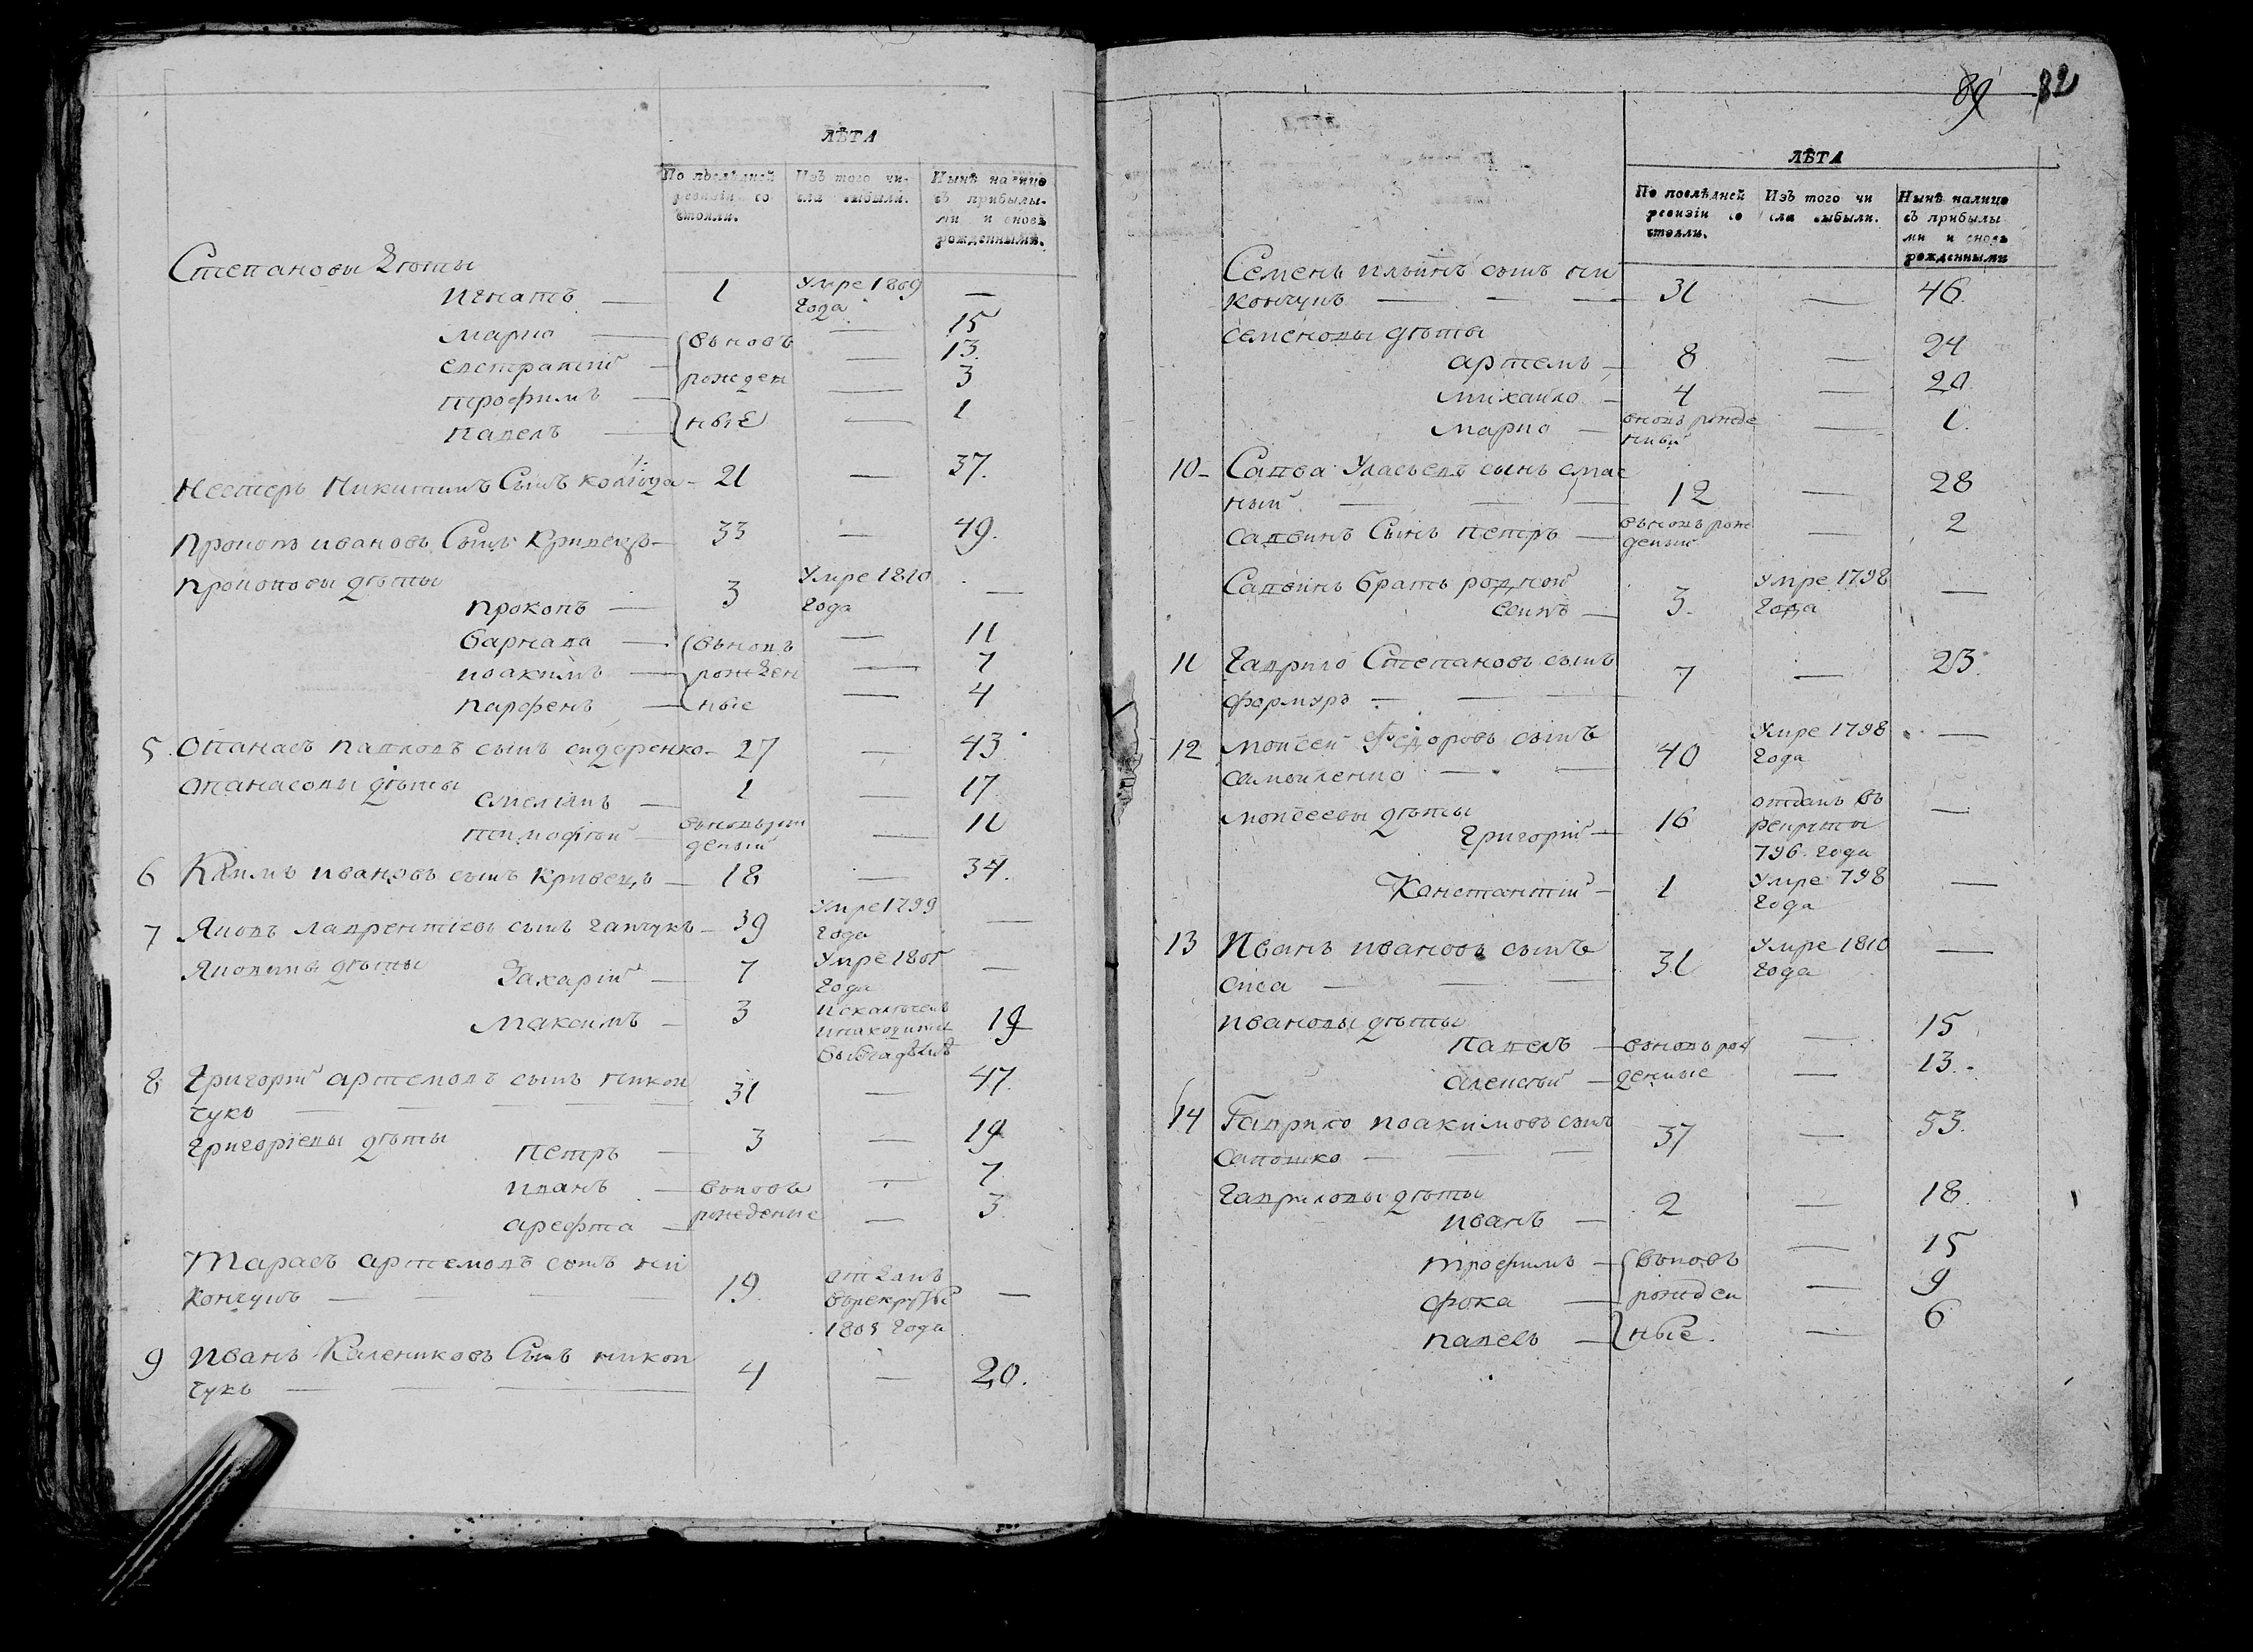 ЛѢТА
По послѣдней ревизіи состояли.
Изъ того числа выбыли.
Нынѣ налицо съ прибылыми и вновь рожденными.
Степановы дѣты
игнатъ — 1 Умре 1809 года —
марко — вьновъ — 15
евстратий — рожден — 13.
трофимъ — ные — 3
павелъ — — 1
Нестеръ Никитинъ Сынъ коліода — 21 — 37.
Прокопъ ивановъ Сынъ Кривецъ — 33 — 49.
прокоповы дѣты
прокопъ — 3 Умре 1810 года —
варнава — вьновъ — 11
иоакимъ — рожден — 7
парфенъ — ные — 4
5 Опанасъ павловъ сынъ сидоренко — 27 — 43
опанасовы дѣты
емелиянъ — 1 — 17.
тимофѣй — вьновь рож деный — 11
6 Климъ ивановъ сынъ кривецъ — 18 — 34.
7 Яковъ лаврентіевъ сынъ — 39 Умре 1799 года —
Яковины дѣты
Захарій — 7 Умре 1805 года —
Максимъ — 3 — 19
8 Григорій артемовъ сынъ никон
чукъ — 31 — 47.
григоріевы дѣты
петръ — 3 — 19
иванъ — вьновь — 7
арефта — рожденые — 3.
Тарасъ артемовъ сынъ ни
кончукъ — 19. отданъ в рекруты 1805 года —
9 Иванъ Калениковъ Сынъ никон
чукъ — 4 — 20.
89 82
ЛѢТА
По послѣдней ревизіи состояли.
Изъ того числа выбыли.
Нынѣ налицо съ прибылыми и вновь рожденными
Семенъ ильинъ сынъ ни
кончукъ — 31 — 46.
семеновы дѣты
артемъ — 8 — 24
михайло — 4 — 20
марко — вновь рожде ный — 1.
10 Савва Уласьевъ сынъ смас
ный — 12 — 28
саввинъ Сынъ петръ — вьновь рож деный — 2
Саввинъ братъ родной
— 3. Умре 1798 года —
11 Гаврило Степановъ сынъ
фармуръ — 7 — 23.
12 моисей Федоровъ сынъ
самойленко — 40 Умре 1798 года —
моисеевы дѣты
Григорій — 16 отданъ въ рекруты 796. года —
Константій — 1 Умре 798 года —
13 Иванъ ивановъ сынъ
— 31 Умре 1810 года —
ивановы дѣты
павелъ — вьновь рож — 15
алексѣй — денные — 13.
14 Гаврило иоакимовъ сынъ
сапошко — 37 — 53.
гавриловы дѣты
иванъ — 2 — 18.
трофимъ — вьновь — 15
фока — рожден — 9
павелъ — ные. — 6